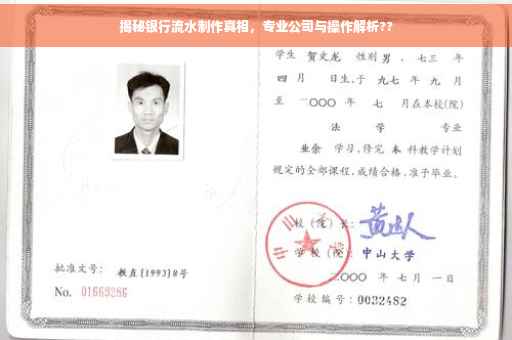 揭秘银行流水制作真相，专业公司与操作解析??
学生 贺文龙 性别 男 、七三 年
四 月 日生,于 九七 年 九 月
至 二〇〇〇 年 七 月在本校(院)
法 学 专业
业余 学习,修完 本 科教学计划
规定的全部课程,成绩合格,准予毕业。
校 (院) 长:
批准文号: 教直(1993)8号
学校 (院): 中山大学
No. 01663286
二〇〇〇 年 七 月 一 日
学校编号: 0032482